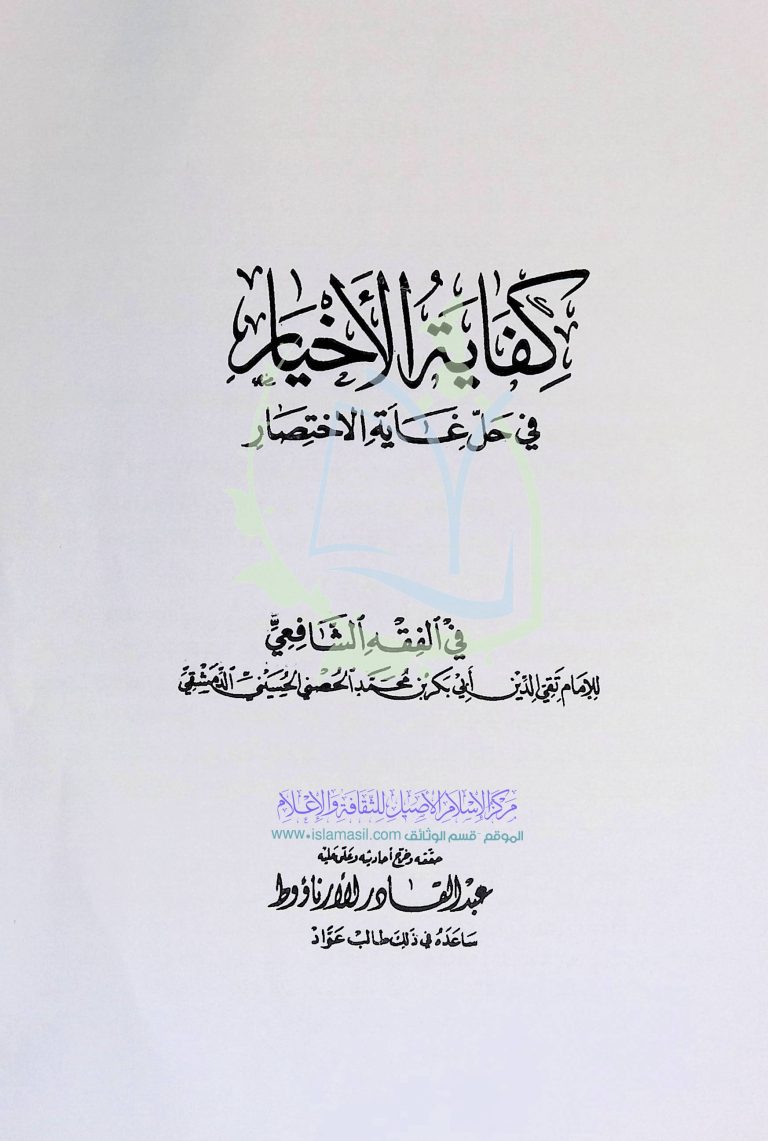 كِفَايَةُ الأَخْيَارِ
فِي حَلِّ غَايَةِ الاخْتِصَارِ
فِي الفِقْهِ الشَّافِعِيِّ
لِلإِمَام تَقِيِّ الدِّيْن أَبِي بَكْرِ بْنِ مُحَمَّد الحُصْنِي الحُسَيْنِيِّ الدِّمَشْقِيِّ
مركز الإسلام الأصيل للثقافة والإعلام
الموقع - قسم الوثائق www.islamasil.com
حققه وخرج أحاديثه وعلق عليه
عبد القادر الأرناؤوط
سَاعَدَهُ في ذَلِكَ طالب عَوَّاد